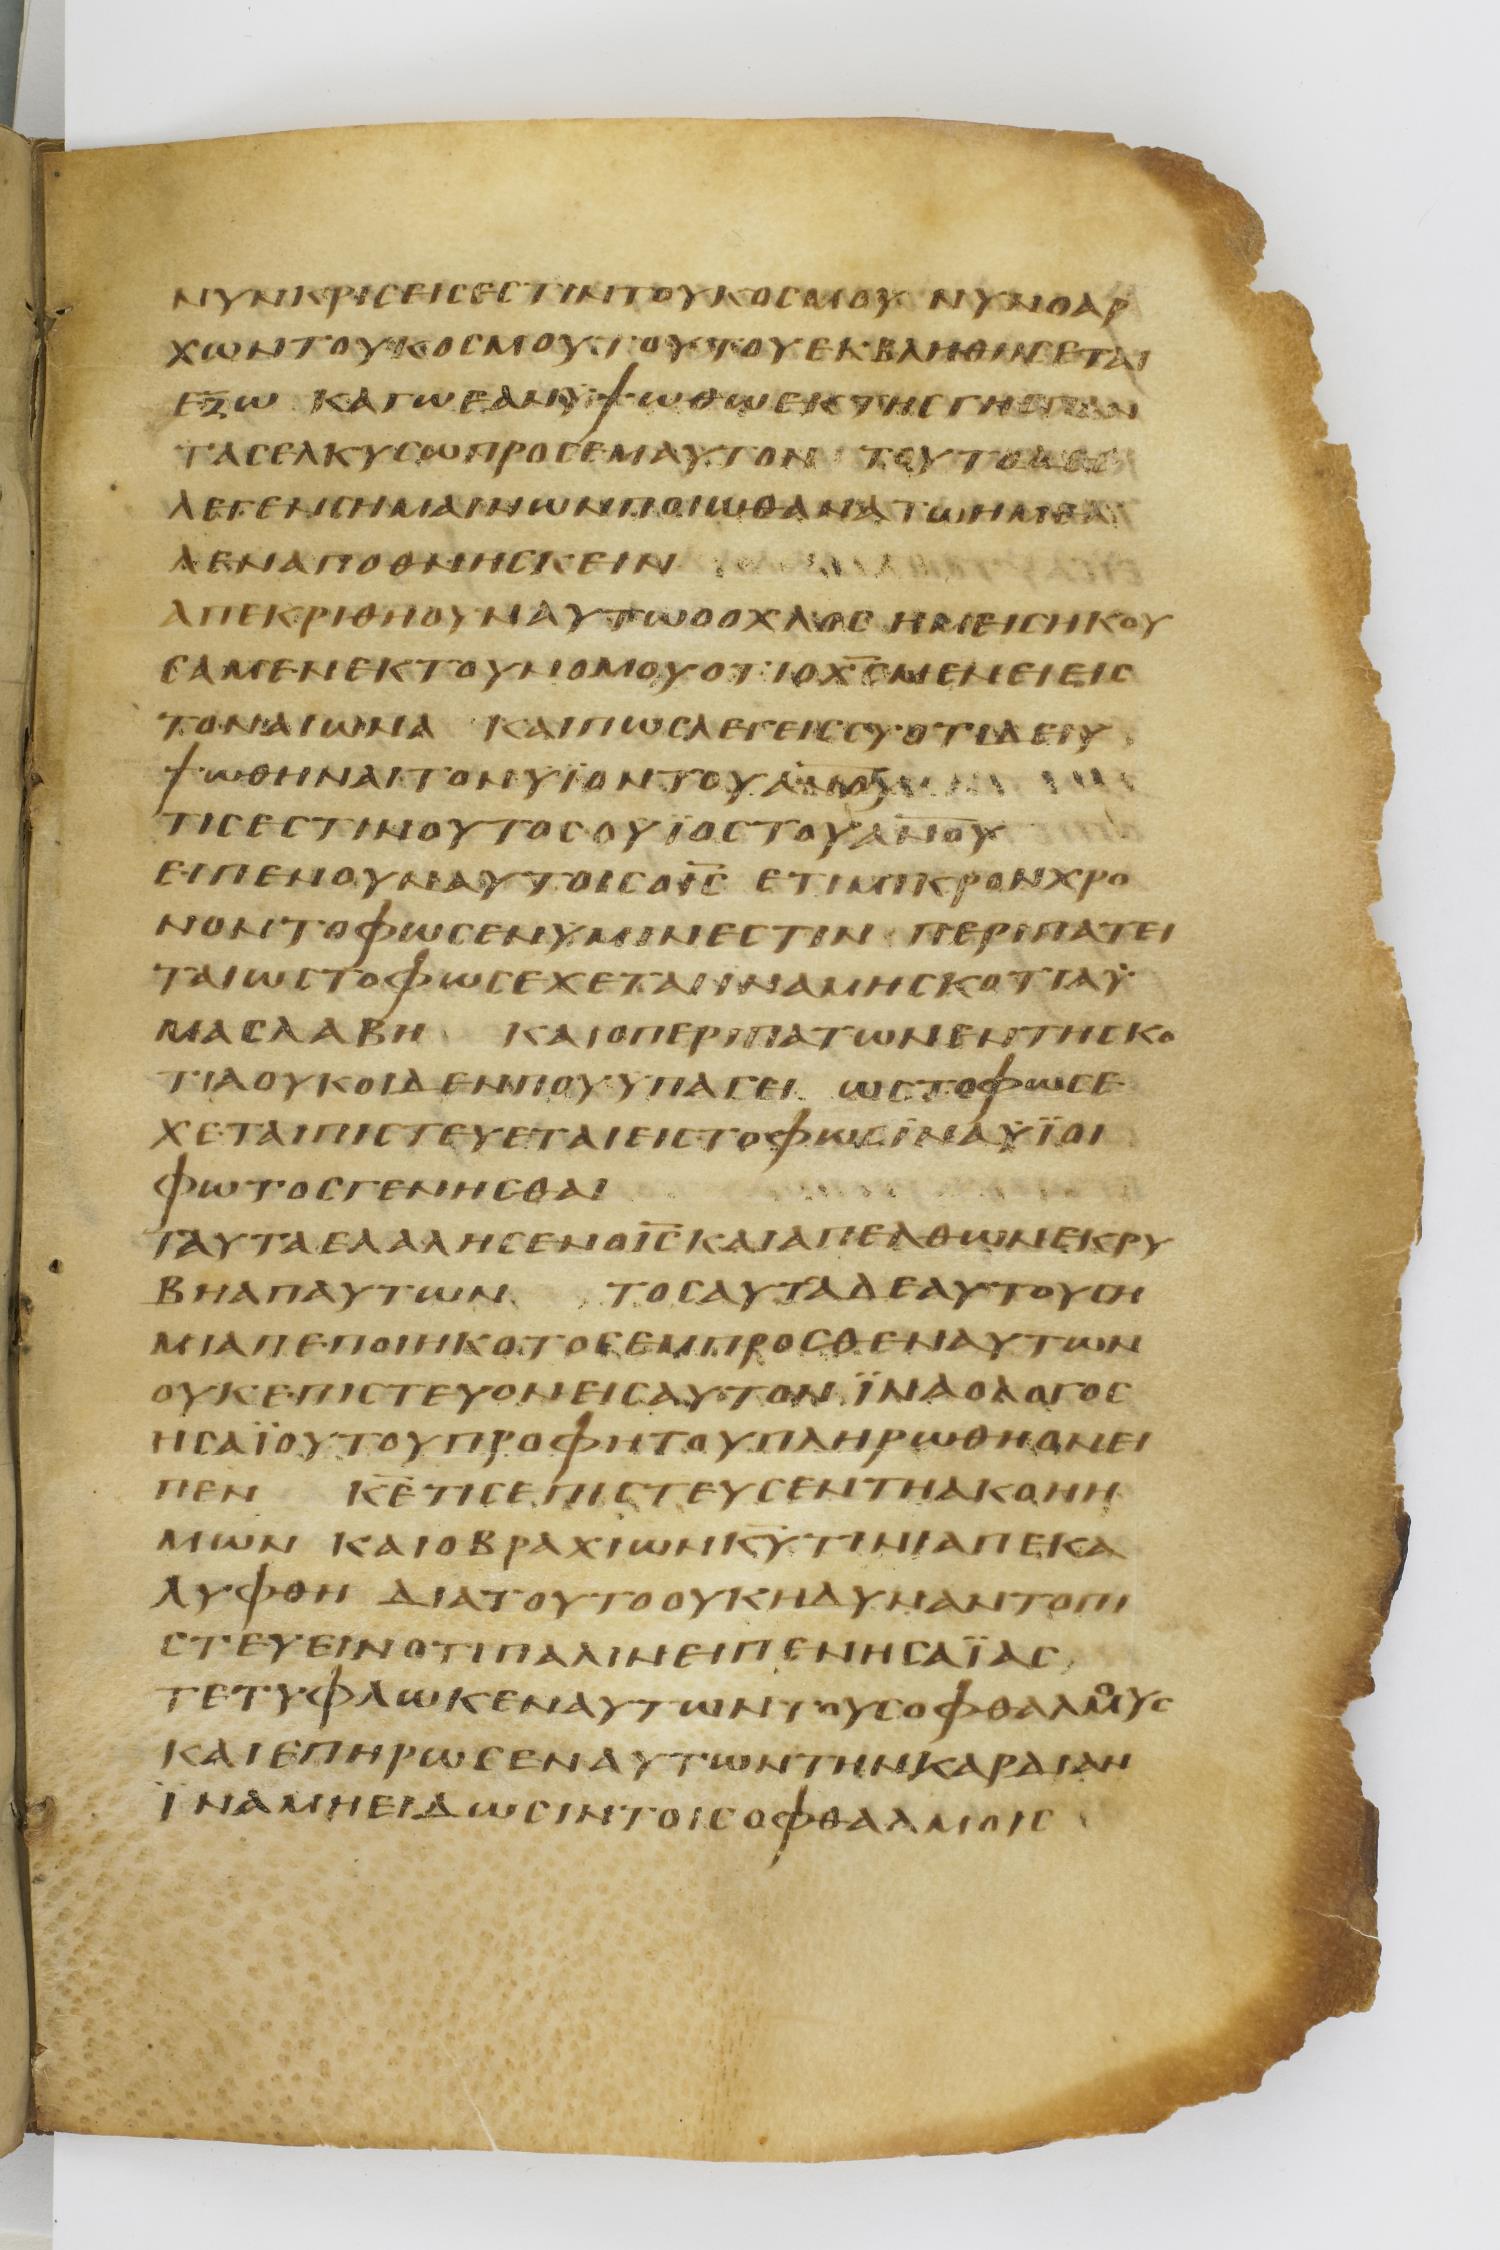 ΝΥΝΚΡΙϹΕΙϹΕϹΤΙΝΤΟΥΚΟϹΜΟΥ ΝΥΝΟΑΡ
ΧΩΝΤΟΥΚΟϹΜΟΥΤΟΥΤΟΥΕΚΒΛΗΘΗϹΕΤΑΙ
ΕΞΩ ΚΑΓΩΕΑΝΥΨΩΘΩΕΚΤΗϹΓΗϹΠΑΝ
ΤΑϹΕΛΚΥϹΩΠΡΟϹΕΜΑΥΤΟΝ ΤΟΥΤΟΔΕΕ
ΛΕΓΕΝϹΗΜΑΙΝΩΝΠΟΙΩΘΑΝΑΤΩΗΜΕΛ
ΛΕΝΑΠΟΘΝΗϹΚΕΙΝ
ΑΠΕΚΡΙΘΗΟΥΝΑΥΤΩΟΟΧΛΟϹ ΗΜΕΙϹΗΚΟΥ
ϹΑΜΕΝΕΚΤΟΥΝΟΜΟΥΟΤΙΟΧ̅Ϲ̅ΜΕΝΕΙΕΙϹ
ΤΟΝΑΙΩΝΑ ΚΑΙΠΩϹΛΕΓΕΙϹϹΥΟΤΙΔΕΙΥ
ΨΩΘΗΝΑΙΤΟΝΥΙΟΝΤΟΥΑ̅Ν̅Ο̅Υ̅
ΤΙϹΕϹΤΙΝΟΥΤΟϹΟΥΙΟϹΤΟΥΑ̅Ν̅Ο̅Υ̅
ΕΙΠΕΝΟΥΝΑΥΤΟΙϹΟΙ̅Ϲ̅ ΕΤΙΜΙΚΡΟΝΧΡΟ
ΝΟΝΤΟΦΩϹΕΝΥΜΙΝΕϹΤΙΝ ΠΕΡΙΠΑΤΕΙ
ΤΑΙΩϹΤΟΦΩϹΕΧΕΤΑΙΙΝΑΜΗϹΚΟΤΙΑΥ
ΜΑϹΛΑΒΗ ΚΑΙΟΠΕΡΙΠΑΤΩΝΕΝΤΗϹΚΟ
ΤΙΑΟΥΚΟΙΔΕΝΠΟΥΥΠΑΓΕΙ ΩϹΤΟΦΩϹΕ
ΧΕΤΑΙΠΙϹΤΕΥΕΤΑΙΕΙϹΤΟΦΩϹΪΝΑΥΪΟΙ
ΦΩΤΟϹΓΕΝΗϹΘΑΙ
ΤΑΥΤΑΕΛΑΛΗϹΕΝΟΙ̅Ϲ̅ΚΑΙΑΠΕΛΘΩΝΕΚΡΥ
ΒΗΑΠΑΥΤΩΝ ΤΟϹΑΥΤΑΔΕΑΥΤΟΥϹΗ
ΜΙΑΠΕΠΟΙΗΚΟΤΟϹΕΜΠΡΟϹΘΕΝΑΥΤΩΝ
ΟΥΚΕΠΙϹΤΕΥΟΝΕΙϹΑΥΤΟΝ ΪΝΑΟΛΟΓΟϹ
ΗϹΑΪΟΥΤΟΥΠΡΟΦΗΤΟΥΠΛΗΡΩΘΗΟΝΕΙ
ΠΕΝ Κ̅Ε̅ΤΙϹΕΠΙϹΤΕΥϹΕΝΤΗΑΚΟΗΗ
ΜΩΝ ΚΑΙΟΒΡΑΧΙΩΝΚ̅Υ̅ΤΙΝΙΑΠΕΚΑ
ΛΥΦΘΗ ΔΙΑΤΟΥΤΟΟΥΚΗΔΥΝΑΝΤΟΠΙ
ϹΤΕΥΕΙΝΟΤΙΠΑΛΙΝΕΙΠΕΝΗϹΑΪΑϹ
ΤΕΤΥΦΛΩΚΕΝΑΥΤΩΝΤΟΥϹΟΦΘΑΛΜΟΥϹ
ΚΑΙΕΠΗΡΩϹΕΝΑΥΤΩΝΤΗΝΚΑΡΔΙΑΝ
ΪΝΑΜΗΕΙΔΩϹΙΝΤΟΙϹΟΦΘΑΛΜΟΙϹ